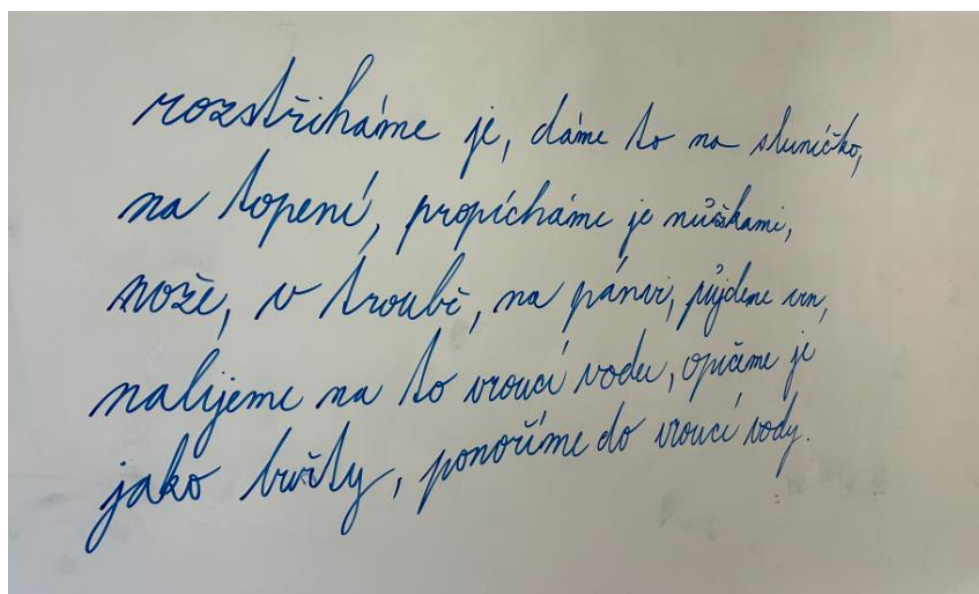 rozstřiháme je, dáme to na sluníčko,
na topení, propícháme je nůžkami,
nože, v troubě, na pánvi, půjdeme ven,
nalijeme na to vroucí vodu, opičeme je
jako buřty, ponoříme do vroucí vody.